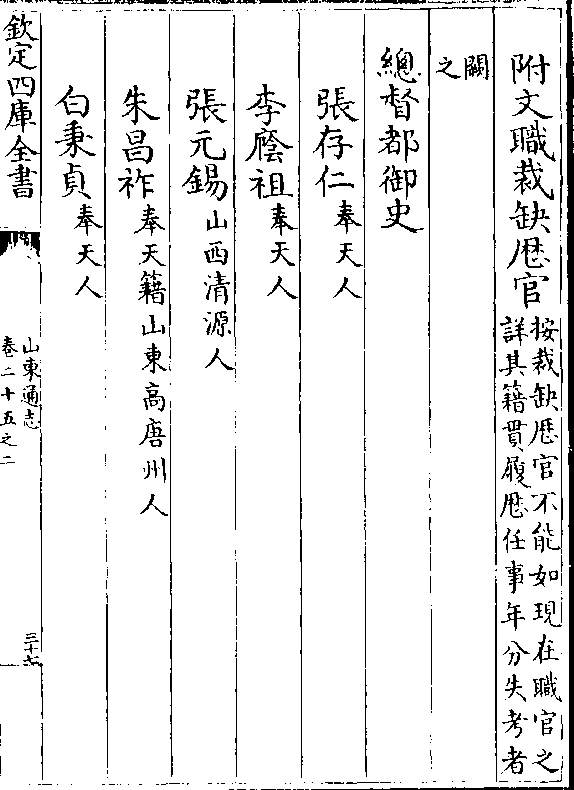 附文職裁缺歴官按裁缺歴官不能如現在職官之詳其籍貫履歴任事年分失考者
闕之
總督都御史
張存仁奉天人
李廕祖奉天人
張元錫山西清源人
朱昌祚奉天籍山東高唐州人
白秉貞奉天人
欽定四庫全書
山東通志
卷二十五之二
三十六